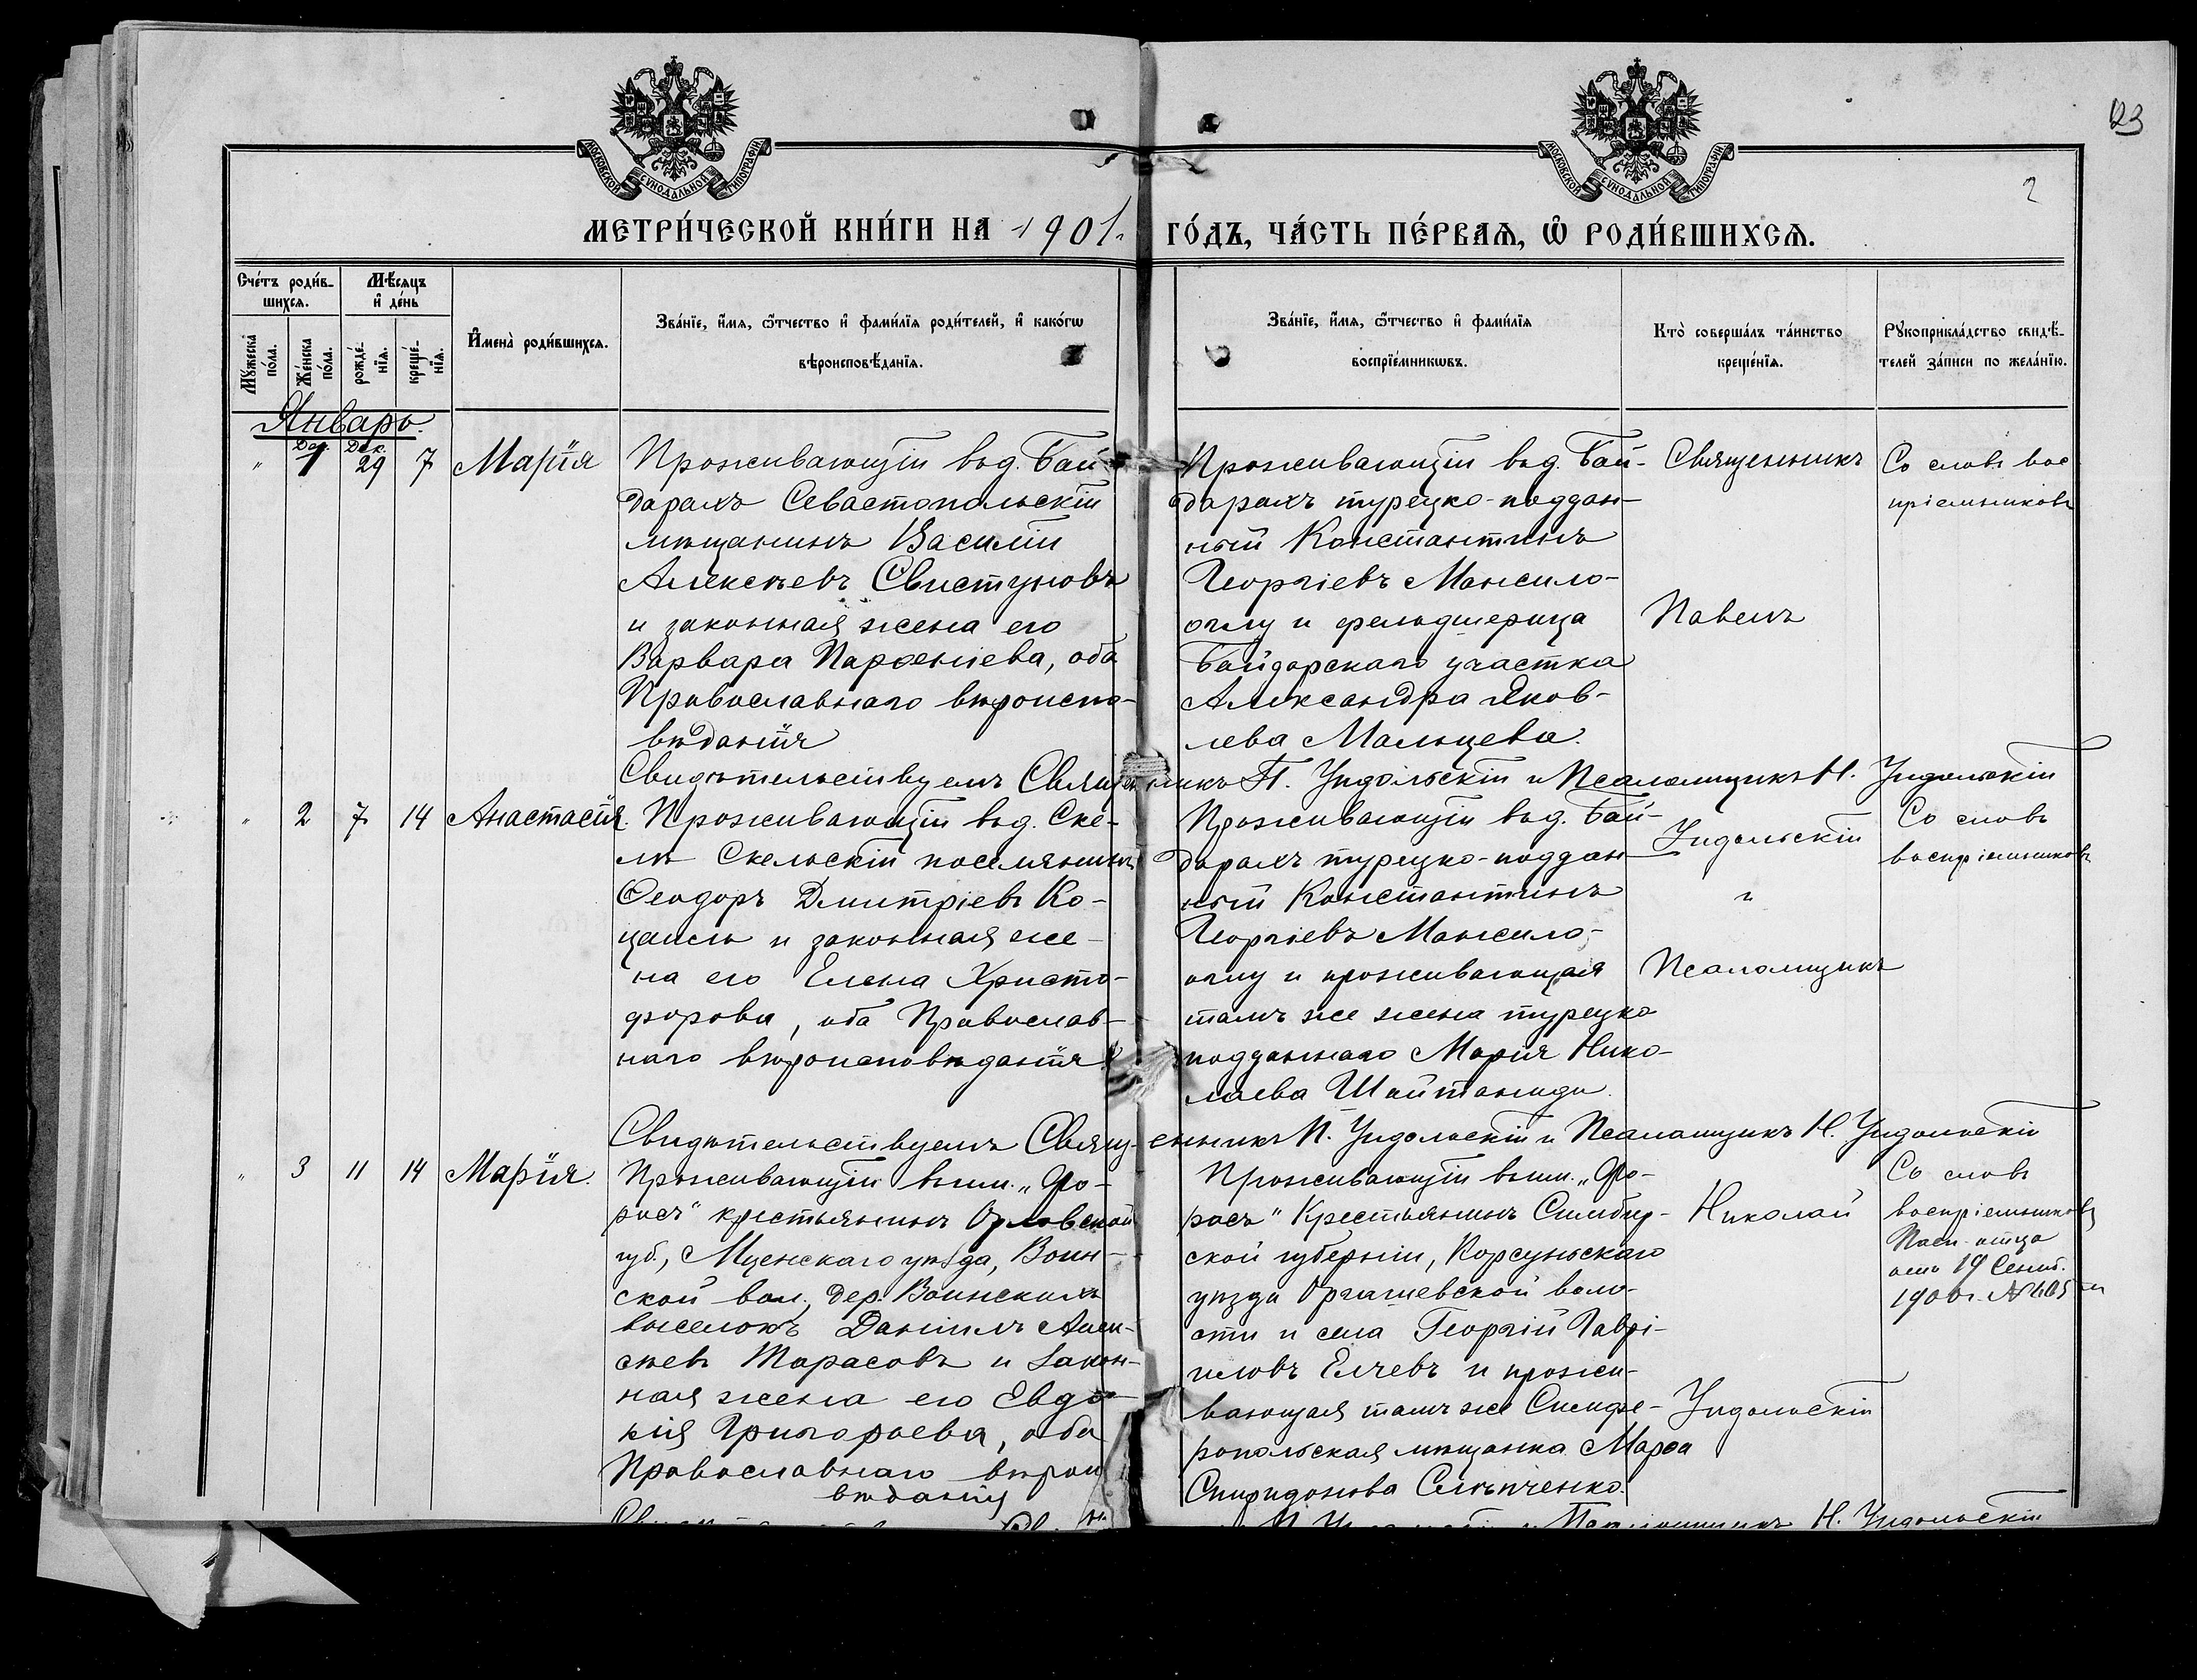 123
2
МОСКОВСКОЙ СѴНОДАЛЬНОЙ ТИПОГРАФІИ
МОСКОВСКОЙ СѴНОДАЛЬНОЙ ТИПОГРАФІИ
МЕТРИ́ЧЕСКОЙ КНИ́ГИ НА 1901 ГО́ДЪ, ЧА́СТЬ ПЕ́РВАѦ, Ѡ҆ РОДИ́ВШИХСѦ.
Сче́тъ роди́в-
шихсѧ.
Мѣ́сѧцъ
и҆ де́нь
Мꙋ́жеска
по́ла.
Же́нска
по́ла.
рожде́-
нїѧ.
креще́-
нїѧ.
И҆мена̀ роди́вшихсѧ.
Зва́нїе, и҆́мѧ, ѻ҆́тчество и҆ фами́лїѧ роди́телей, и҆ како́гѡ
вѣроисповѣ́данїѧ.
Зва́нїе, и҆́мѧ, ѻ҆́тчество и҆ фами́лїѧ
воспрїе́мникѡвъ.
Кто̀ соверша́лъ та́инство
креще́нїѧ.
Рꙋкоприкла́дство свидѣ́-
телей за́писи по жела́нїю.
Январь.
Дек.
" 1 29 7 Марія
Проживающій въ д. Бай-
дарахъ Севастопольскій
мѣщанинъ Василій
Алексѣевъ Свистуновъ
и законная жена его
Варвара Парѳеніева, оба
Православнаго вѣроиспо-
вѣданія
Проживающій въ д. Бай-
дарахъ турецко-поддан-
ный Константинъ
Георгіевъ Мансило-
оглу и фельдшерица
Байдарскаго участка
Александра Яков-
лева Мальцева.
Священникъ
Павелъ
Индольскій
и
Псаломщикъ
Николай
Индольскій
Со словъ вос
пріемниковъ
Свидѣтельствуемъ Священникъ П. Индольскій и Псаломщикъ Н. Индольскій
" 2 7 14 Анастасія.
Проживающій въ д. Ске-
лѣ Скельскій поселянинъ
Ѳеодоръ Дмитріевъ Ко-
и законная же-
на его Елена Христо-
форова, оба Православ-
наго вѣроисповѣданія
Проживающій въ д. Бай-
дарахъ турецко-поддан-
ный Константинъ
Георгіевъ Мансило-
оглу и проживающая
тамъ же жена турецко
подданнаго Марія Нико-
лаева Шайтаниди.
Со словъ
воспріемниковъ
Свидѣтельствуемъ Священникъ П. Индольскій и Псаломщикъ Н. Индольскій
" 3 11 14 Марія.
Проживающій въ им. „Фо-
росъ" крестьянинъ Орловской
губ., Мценскаго уѣзда, Воин-
ской вол., дер. Воинскихъ
выселокъ Даніилъ Алек-
сѣевъ Тарасовъ и закон-
ная жена его Евдо-
кія Григорьева, оба
Православнаго вѣроис
вѣданія
Проживающій въ им. „Фо-
росъ" Крестьянинъ Симбир-
ской губерніи, Корсунскаго
уѣзда воло-
сти и села Георгій Гаврі-
иловъ Елчевъ и прожи-
вающая тамъ же Симфе-
ропольская мѣщанка Марѳа
Спиридонова Слѣпченко.
Со словъ
воспріемниковъ
Пасп. отца
отъ 19 Сент.
1900 г. №
Н. Индольскій